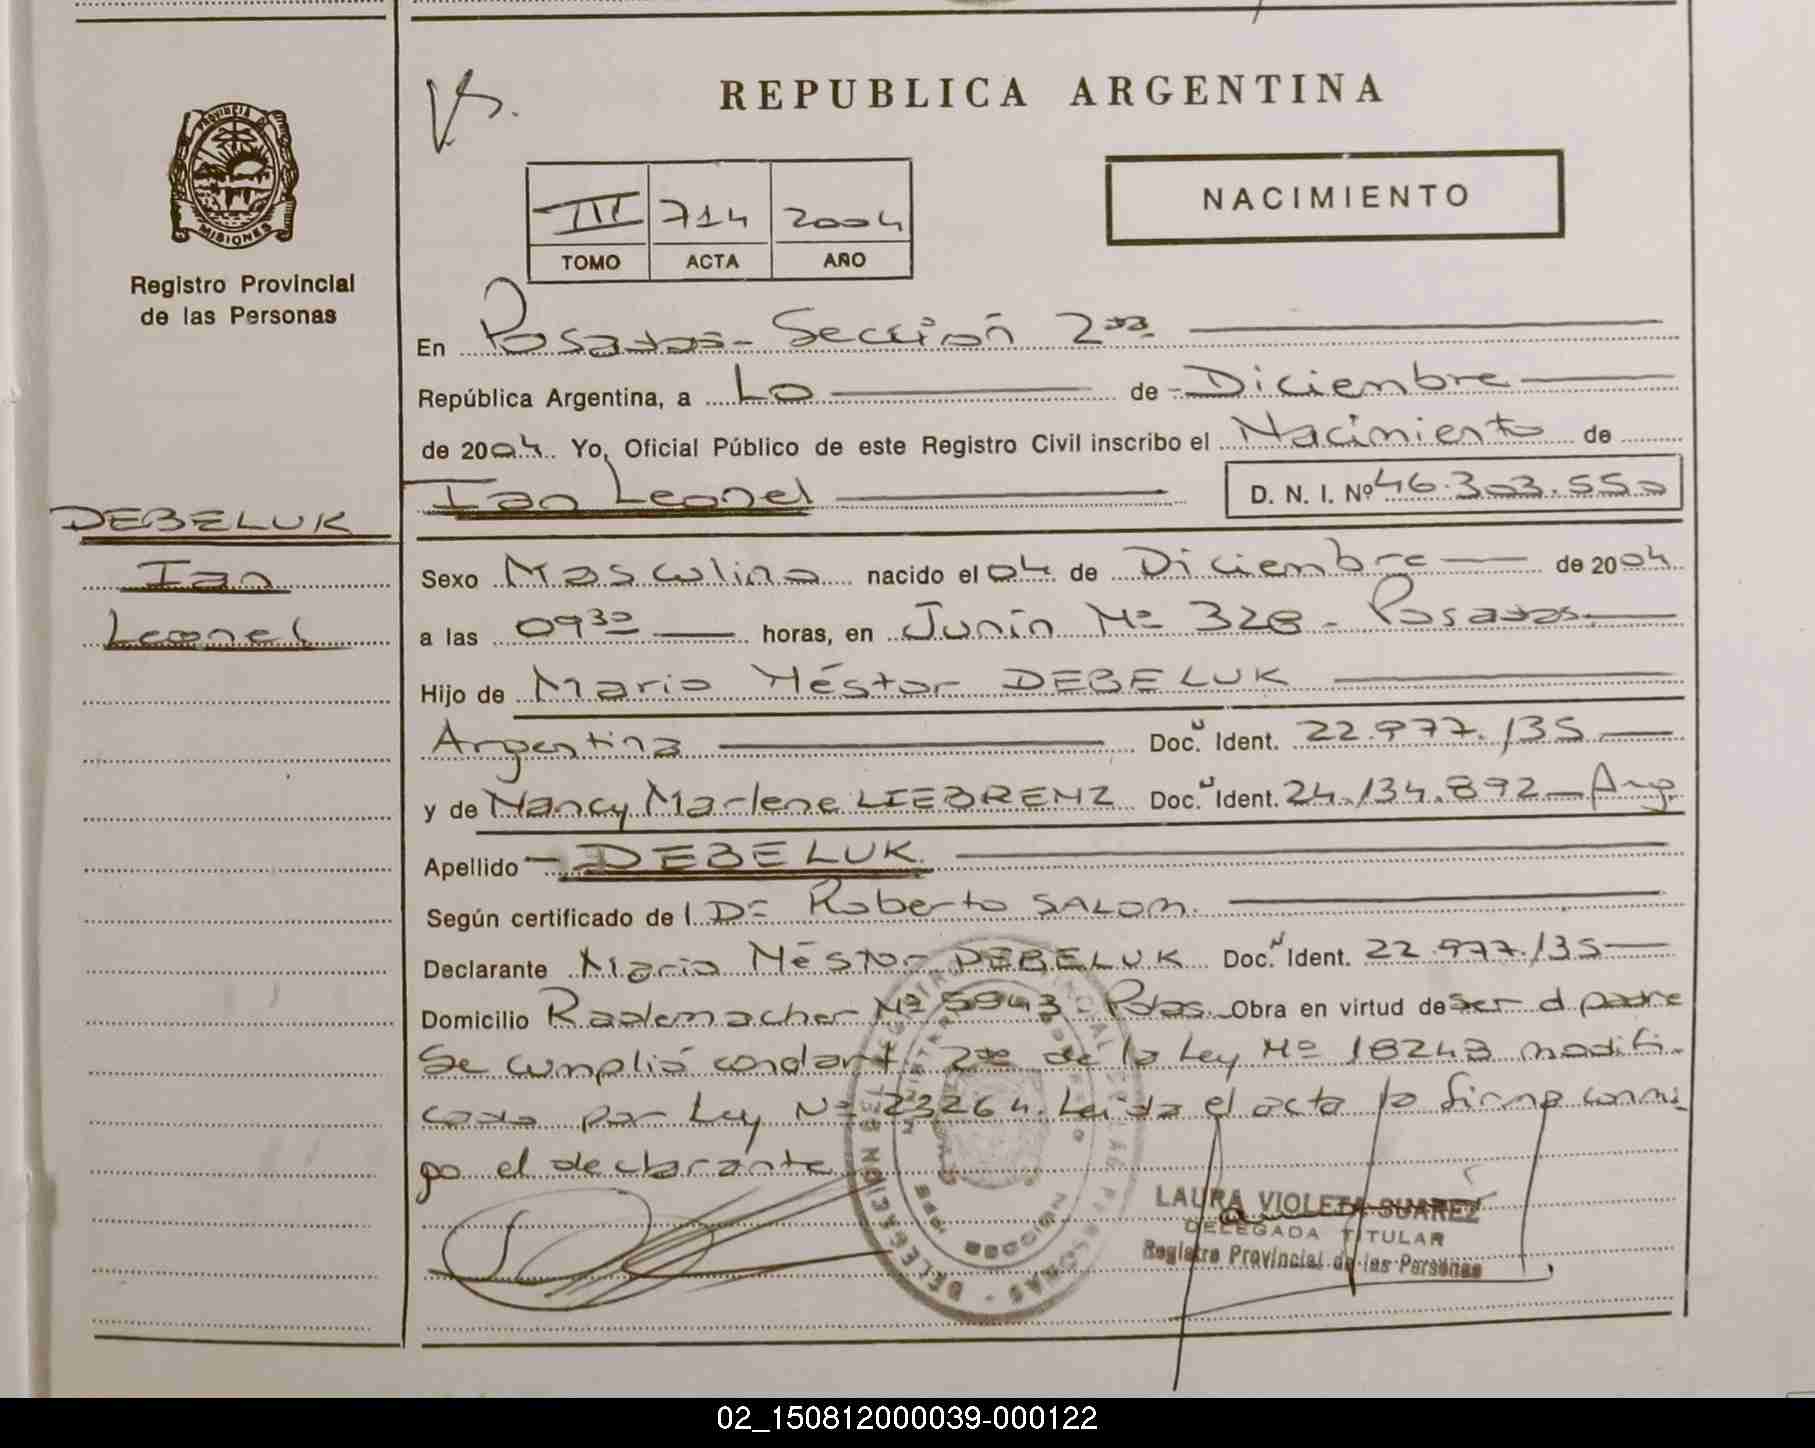 REPUBLICA ARGENTINA
PROVINCIA DE
MISIONES
Registro Provincial
de las Personas
III 714 2004
TOMO ACTA AÑO
NACIMIENTO
En Posadas - Sección 2da
República Argentina, a 10 de Diciembre
de 2004. Yo, Oficial Público de este Registro Civil inscribo el Nacimiento de
Ian Leonel D. N. I. Nº 46.303.550
DEBELUK
Ian
Leonel
Sexo Masculino nacido el 04 de Diciembre de 2004
a las 0930 horas, en Junín Nº 328 - Posadas
Hijo de Mario Néstor DEBELUK
Argentina Doc. Ident. 22.977.135
y de Nancy Marlene LIEBRENZ Doc. Ident. 24.134.892 - Arg.
Apellido - DEBELUK.
Según certificado de l Dr Roberto SALOM.
Declarante Mario Néstor DEBELUK Doc. Ident. 22.977.135
Domicilio Rademacher Nº 5943 - Pdas. Obra en virtud de ser el padre
Se cumplió con el art. 2do de la Ley Nº 18248 modifi-
cada por Ley Nº 23264. Leída el acta la firma conmi-
go el declarante
LAURA VIOLETA SUAREZ
DELEGADA TITULAR
Registro Provincial de las Personas
02_150812000039-000122